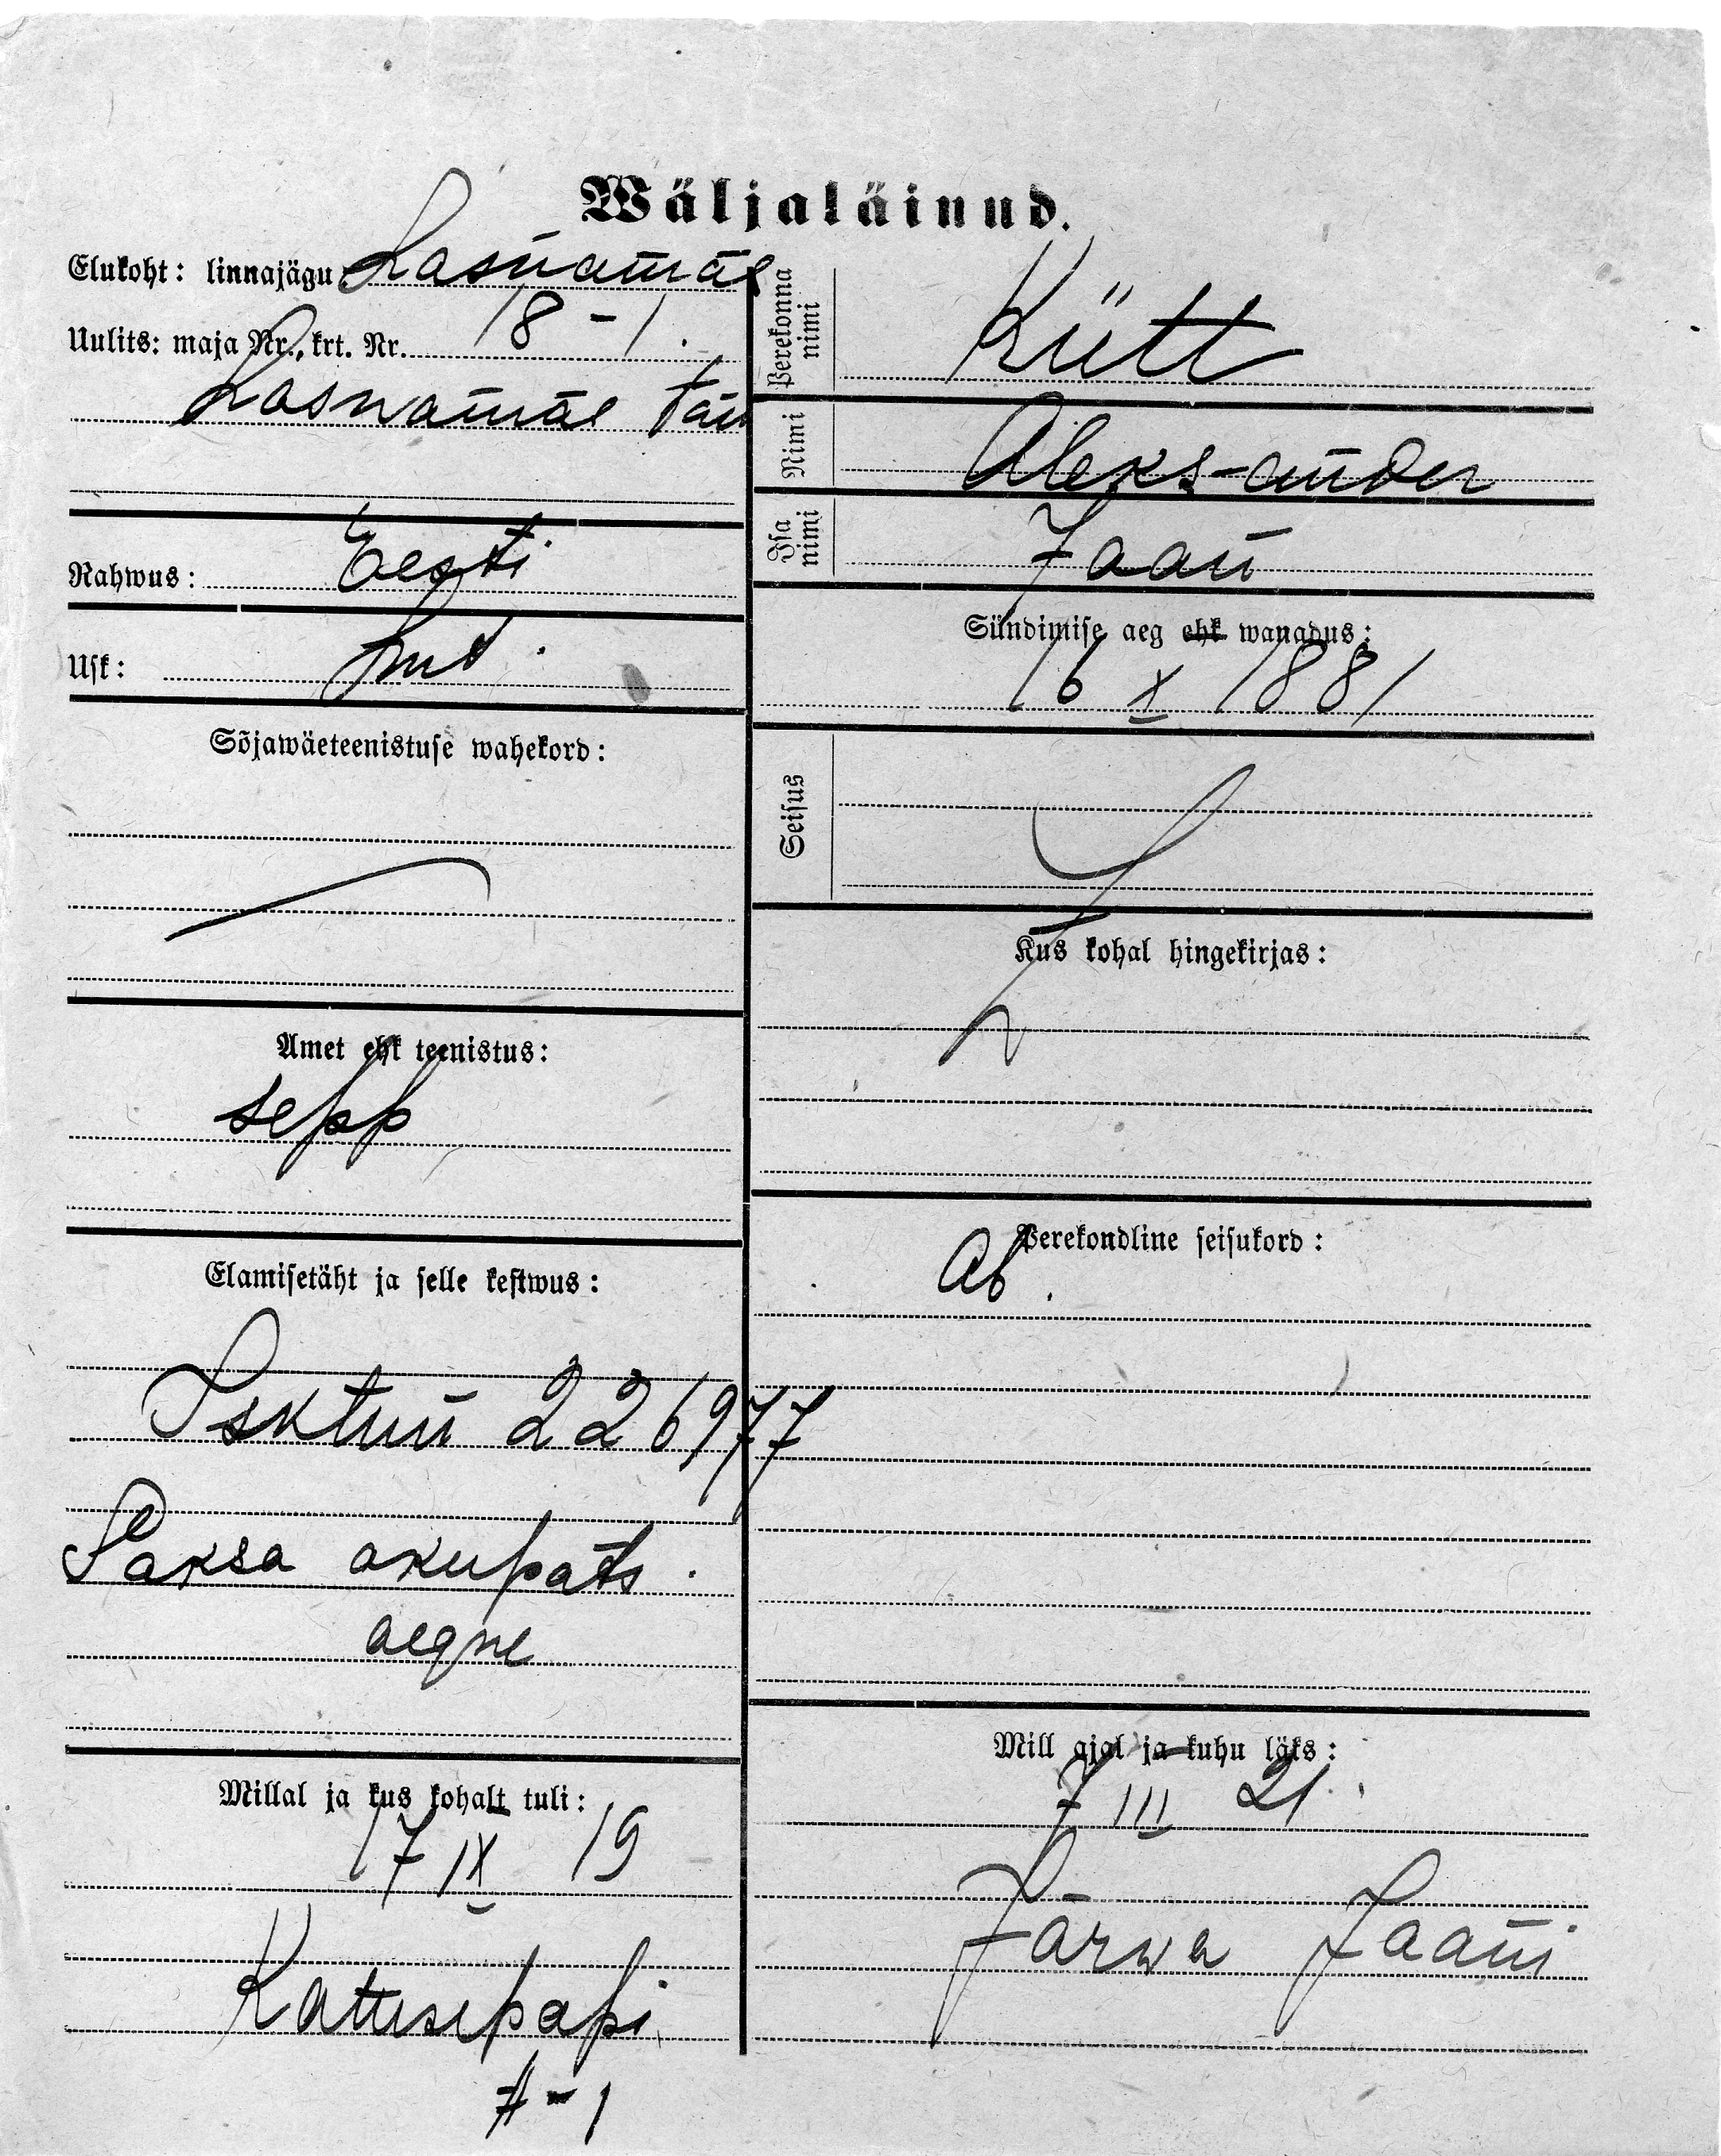 Wäljaläinud.
Elukoht: linnajägu Lasnamäe
Uulits: maja Nr., krt. Nr. 18-1.
Lasnamäe tän
Rahwus: Eesti
Usk: lut.
Sõjawäeteenistuse wahekord:
Amet ehk teenistus:
sepp
Elamisetäht ja selle kestwus:
Isktun 226977
Saksa okupats.
aegne
Millal ja kus kohalt tuli:
17 IX 19
Katusepapi
Perekonna nimi
Kütt
Nimi
Aleks-ander
Isa nimi
Jaan
Sündimise aeg ehk wanadus:
16 X 1881
Seisus
Kus kohal hingekirjas:
Perekondline seisukord:
Ab.
Mill ajal ja kuhu läks:
7 III 21.
Järwa Jaani